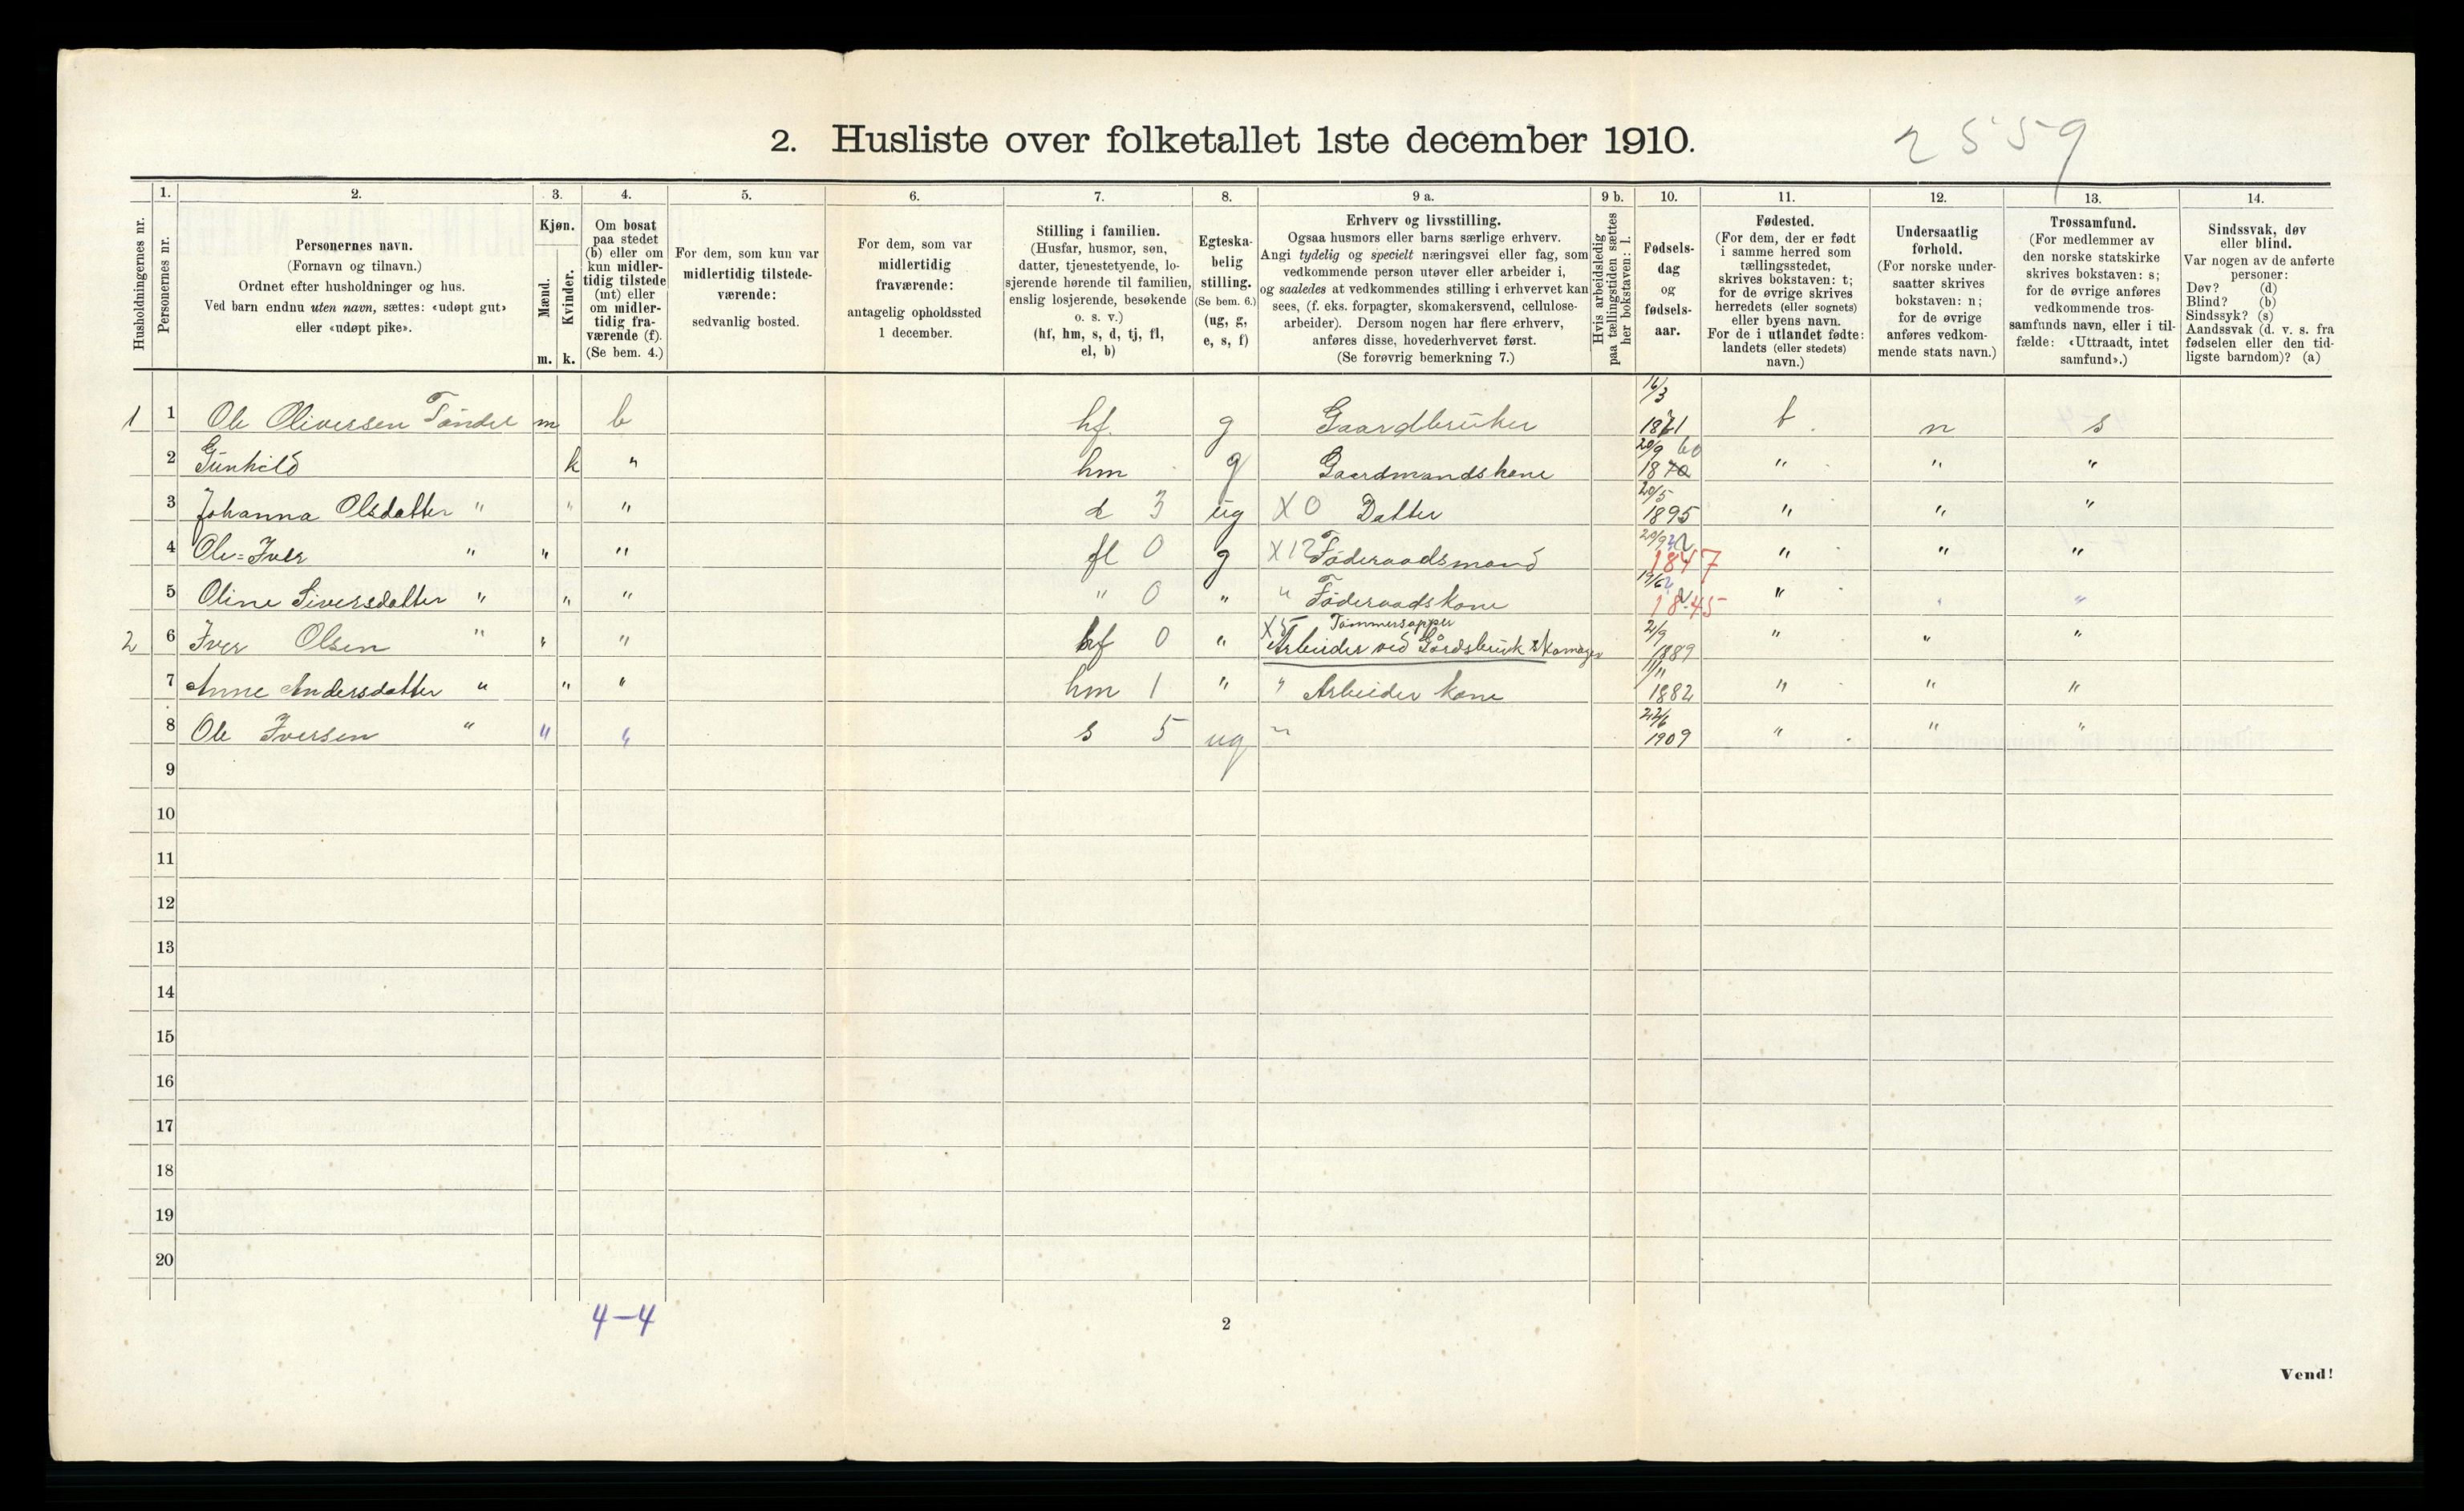 2. Husliste over folketallet 1ste december 1910.
2559
Husholdningernes nr.
1.
Personernes nr.
2.
Personernes navn.
(Fornavn og tilnavn.)
Ordnet efter husholdninger og hus.
Ved barn endnu uten navn, sættes: «udøpt gut»
eller «udøpt pike».
3.
Kjøn.
Mænd.
Kvinder.
m. k.
4.
Om bosat
paa stedet
(b) eller om
kun midler-
tidig tilstede
(mt) eller
om midler-
tidig fra-
værende (f).
(Se bem. 4.)
5.
For dem, som kun var
midlertidig tilstede-
værende:
sedvanlig bosted.
6.
For dem, som var
midlertidig
fraværende:
antagelig opholdssted
1 december.
7.
Stilling i familien.
(Husfar, husmor, søn,
datter, tjenestetyende, lo-
sjerende hørende til familien,
enslig losjerende, besøkende
o. s. v.)
(hf, hm, s, d, tj, fl,
el, b)
8.
Egteska-
belig
stilling.
(Se bem. 6.)
(ug, g,
e, s, f)
9 a.
Erhverv og livsstilling.
Ogsaa husmors eller barns særlige erhverv.
Angi tydelig og specielt næringsvei eller fag, som
vedkommende person utøver eller arbeider i,
og saaledes at vedkommendes stilling i erhvervet kan
sees, (f. eks. forpagter, skomakersvend, cellulose-
arbeider). Dersom nogen har flere erhverv,
anføres disse, hovederhvervet først.
(Se forøvrig bemerkning 7.)
9 b.
Hvis arbeidsledig
paa tællingstiden sættes
her bokstaven: l.
10.
Fødsels-
dag
og
fødsels-
aar.
11.
Fødested.
(For dem, der er født
i samme herred som
tællingsstedet,
skrives bokstaven: t;
for de øvrige skrives
herredets (eller sognets)
eller byens navn.
For de i utlandet fødte:
landets (eller stedets)
navn.)
12.
Undersaatlig
forhold.
(For norske under-
saatter skrives
bokstaven: n;
for de øvrige
anføres vedkom-
mende stats navn.)
13.
Trossamfund.
(For medlemmer av
den norske statskirke
skrives bokstaven: s;
for de øvrige anføres
vedkommende tros-
samfunds navn, eller i til-
fælde: «Uttraadt, intet
samfund».)
14.
Sindssvak, døv
eller blind.
Var nogen av de anførte
personer:
Døv? (d)
Blind? (b)
Sindssyk? (s)
Aandssvak (d. v. s. fra
fødselen eller den tid-
ligste barndom)? (a)
1 1 Ole Oliversen Tøndel m b hf. g Gaardbruker 16/3 1871 t n s
2 Gunhild k " hm g Gaardmandskone 20/9 1870 60 " " "
3 Johanna Olsdatter " " " d 3 ug X0 Datter 20/5 1895 " " "
4 Ole=Iver " " " fl 0 g X12 Föderaadsmand 20/9 1847 " " "
5 Oline Siversdatter " " " " 0 " " Föderaadskone 19/6 1845 " " "
2 6 Iver Olsen " " " hf 0 " X5 Arbeider ved Gårdsbruk skomager 21/9 1889 " " "
7 Anne Andersdatter " " " hm 1 " " Arbeider kone 11/11 1882 " " "
8 Ole Iversen " " " s 5 ug " 22/6 1909 " " "
9
10
11
12
13
14
15
16
17
18
19
20
4-4
2
Vend!